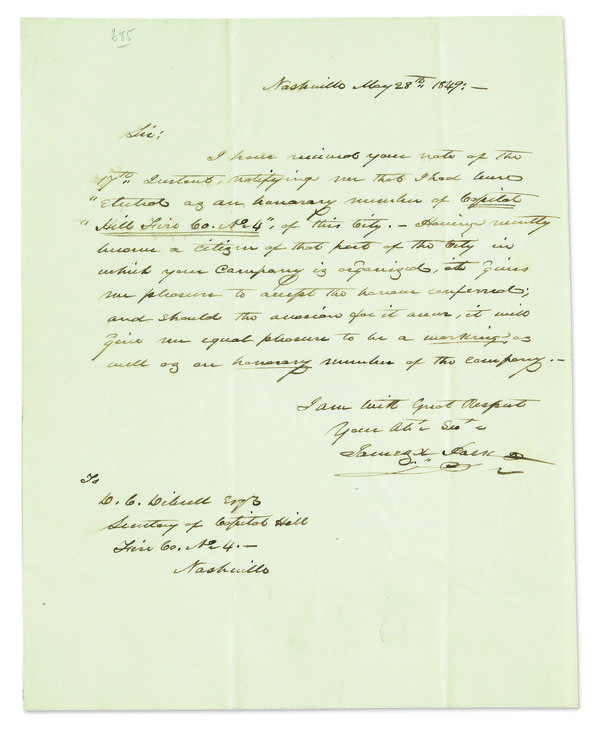 685
Nashville May 28th 1849:—
Sir:
I have received your note of the
17th Instant, notifying me that I had been
"Elected as an honorary member of Capitol
"Hill Fire Co. No 4", of this City.— Having recently
become a citizen of that part of the City in
which your Company is organized, it gives
me pleasure to accept the honour conferred;
and should the occasion for it occur, it will
give me equal pleasure to be a working, as
well as an honorary member of the company.—
I am With Great Respect
Your Obt Servt
James K. Polk
To
D. C. Dibrell Esqr
Secretary of Capitol Hill
Fire Co. No 4.—
Nashville